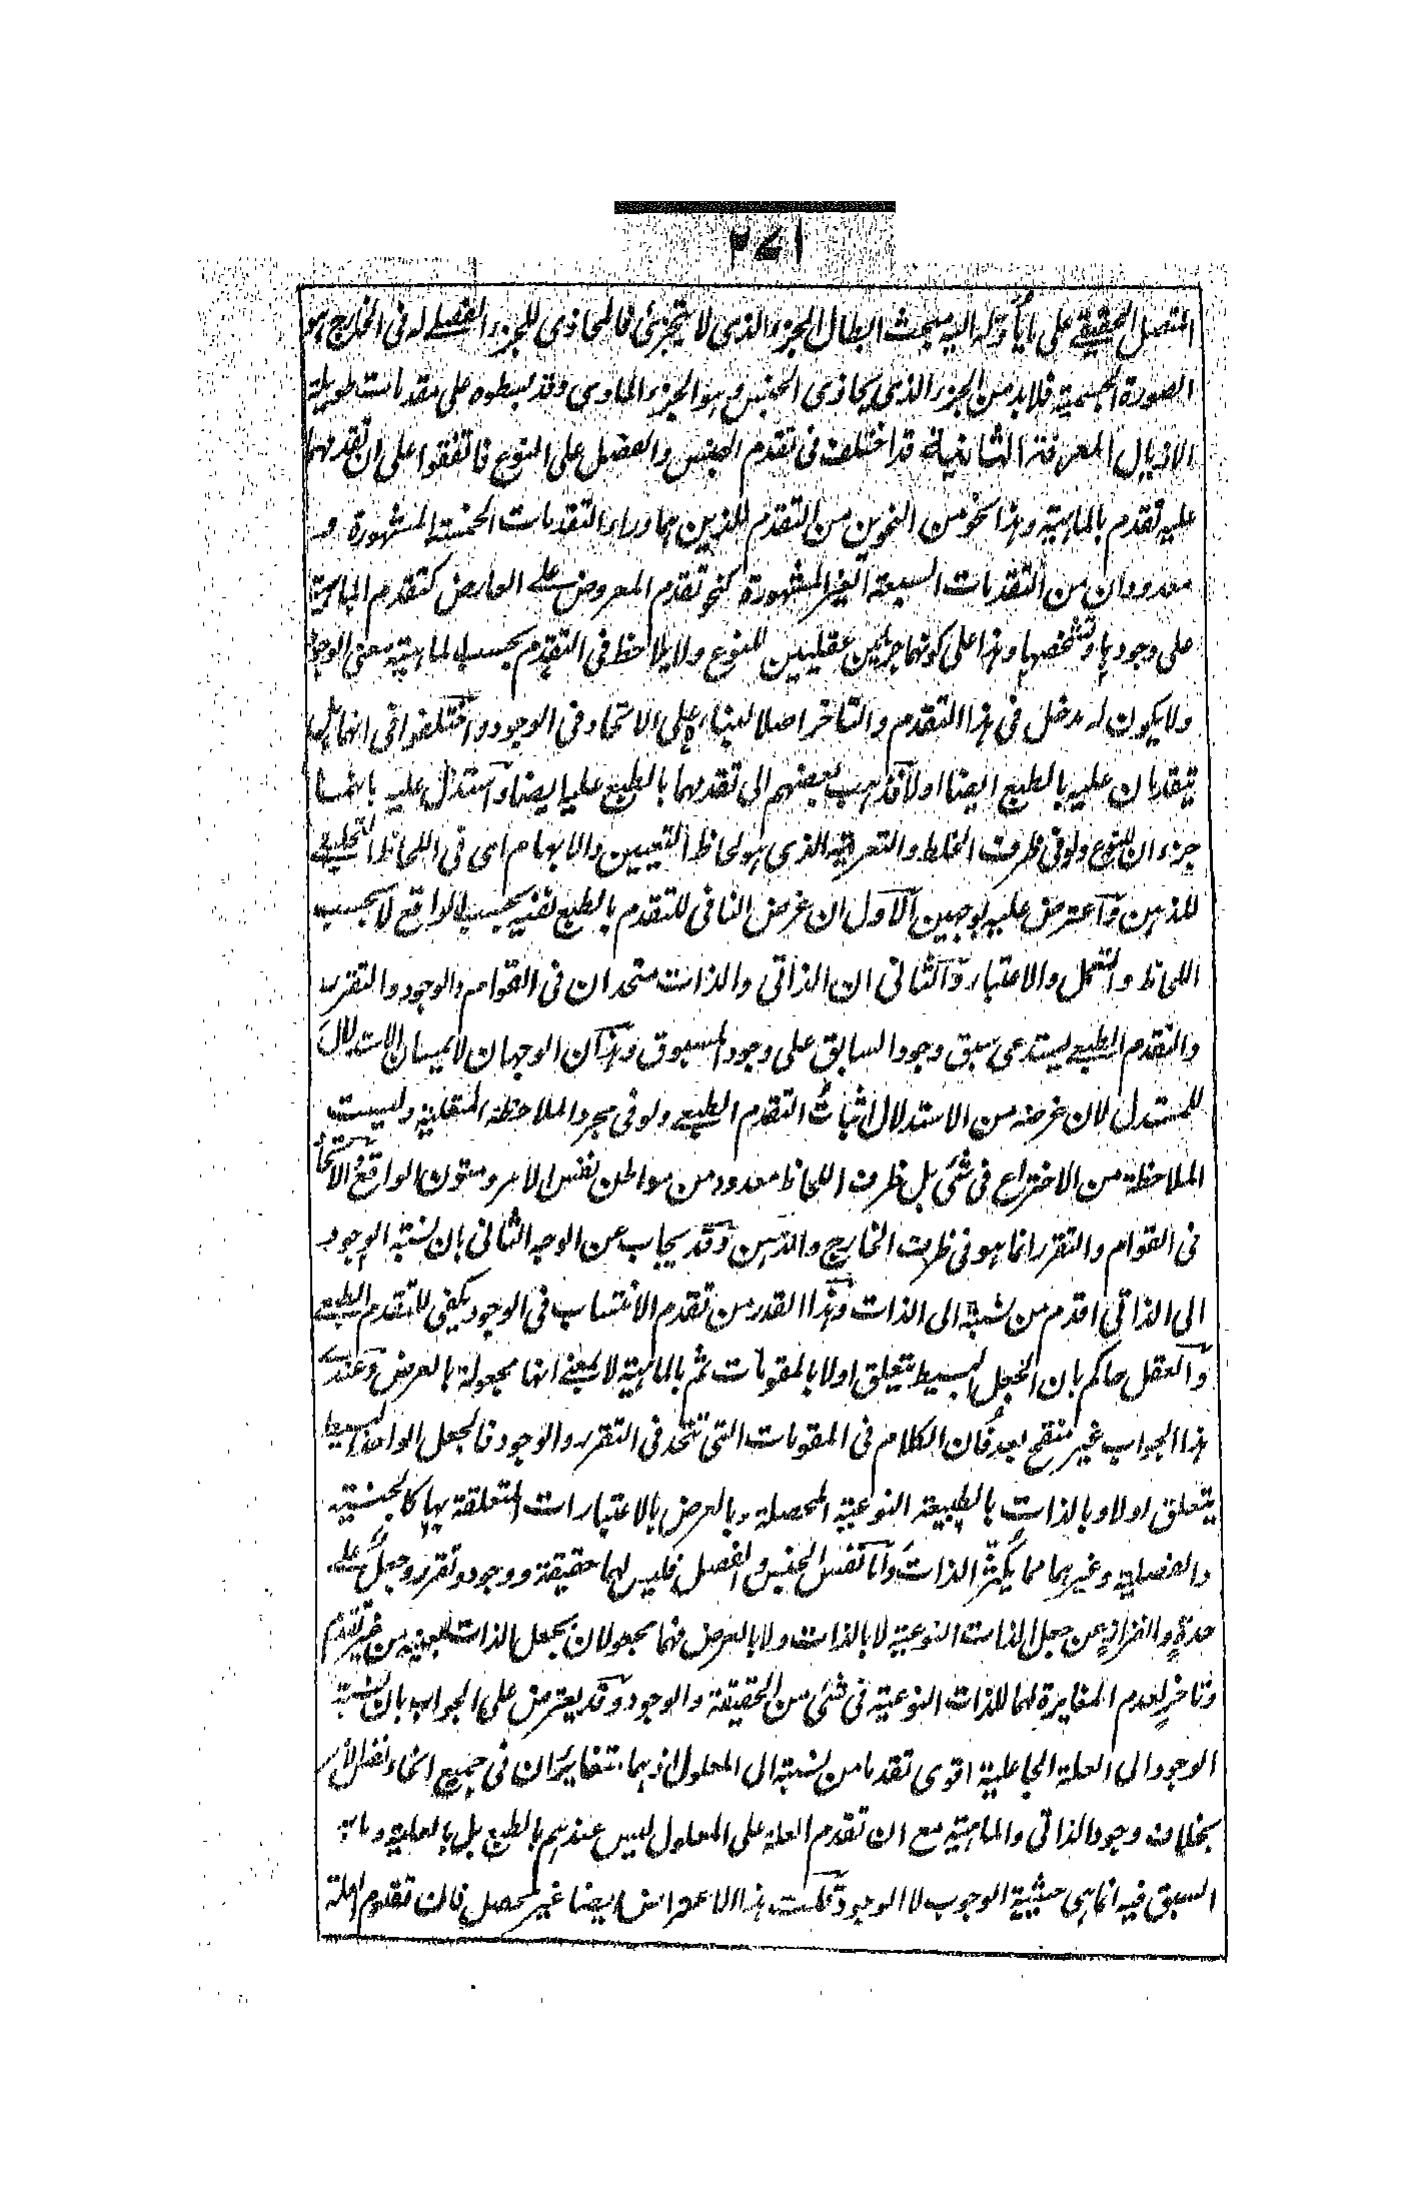 ٢٧١
المتصل الحقيقي على ما يأول اليه مبحث ابطال الجزء الذي لا يتجزئ فالمحاذي للجزء الفصلي له في الخارج هو
الصورة الجسمية فلابد من الجزء الذي يحاذي الجنس وهو الجزء المادي وقد بسطوه على مقدمات طويلة
الاذيال المعرفة الثانية قد اختلف في تقدم الجنس والفصل على النوع فاتفقوا على ان تقدمهما
عليه تقدم بالماهية وهذا نحو من النحوين من التقدم اللذين هما وراء التقدمات الخمسة المشهورة و
معدودان من التقدمات السبعة الغير المشهورة كنحو تقدم المعروض على العارض كتقدم الماهية
على وجودها وتشخصها وهذا على كونهما جزئين عقليين للنوع ولا يلاحظ في التقدم بحسب الماهية معنى الوجود
ولا يكون له مدخل في هذا التقدم والتاخر اصلا لبنائه على الاتحاد في الوجود واختلفوا في انهما هل
يتقدمان عليه بالطبع ايضا اولا فذهب بعضهم الى تقدمهما بالطبع عليه ايضا واستدل عليه بانهما
جزءان للنوع ولو في ظرف الخلط والتعرية الذي هو لحاظ التعيين والابهام اى في اللحاظ التحليلي
للذهن واعترض عليه بوجهين الاول ان غرض النافي للتقدم بالطبع نفيه بحسب الواقع لا بحسب
اللحاظ والتعمل والاعتبار والثاني ان الذاتي والذات متحدان في القوام والوجود والتقرر
والتقدم الطبعي يستدعي سبق وجود السابق على وجود المسبوق وهذان الوجهان لا يمسان الاستدلال
للمستدل لان غرضه من الاستدلال اثبات التقدم الطبعي ولو في مجرد الملاحظة العقلية وليست
الملاحظة من الاختراع في شئ بل ظرف اللحاظ معدود من مواطن نفس الامر ومتون الواقع والاتحاد
في القوام والتقرر انما هو في ظرف الخارج والذهن وقد يجاب عن الوجه الثاني بان نسبة الوجود
الى الذاتي اقدم من نسبته الى الذات وهذا القدر من تقدم الانتساب في الوجود يكفي للتقدم الطبعي
والعقل حاكم بان الجعل البسيط يتعلق اولا بالمقومات ثم بالماهية لا بمعنى انها مجعولة بالعرض وعندي
هذا الجواب غير منقح بعد فان الكلام في المقومات التي تتحد في التقرر والوجود فالجعل الواحد البسيط
يتعلق اولا وبالذات بالطبيعة النوعية المحصلة وبالعرض بالاعتبارات المتعلقة بها كالجنسية
والفصلية وغيرهما مما يكثر الذات واما نفس الجنس والفصل فليس لهما حقيقة ووجود وتقرر وجعل على
حدة وانفراز عن جعل الذات النوعية لا بالذات ولا بالعرض فهما مجعولان بجعل الذات بعينه من غير تقدم
وتاخر لعدم المغايرة لهما للذات النوعية في شئ من الحقيقة والوجود وقد يعترض على الجواب بان نسبة
الوجود الى العلة الجاعلية اقوى تقدما من نسبته الى المعلول اذ هما متغايران في جميع انحاء نفس الامر
بخلاف وجود الذاتي والماهية مع ان تقدم العلة على المعلول ليس عندهم بالطبع بل بالعلية وما به
السبق فيه انما هي حيثية الوجوب لا الوجود قلت هذا الاعتراض ايضا غير محصل فان تقدم العلة